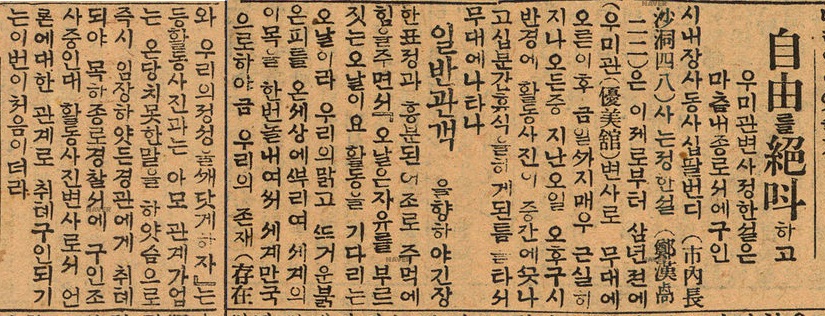 自由를絕叫하고
우미관변사정한설은
마츰내종로서에구인
시내장사동사십팔번디 (市內長
沙洞四八) 사는 정한설 (鄭漢卨
二二)은 이제로부터 삼년전에
(우미관(優美舘)변사로 무대에
오른이후 금일까지매우 근실히
지나오든중 지난오일 오후구시
반경에 활동사진이 중간에끗나
고십분간휴식을하게된틈을타서
무대에나타나
일반관객을향하야긴장
한표정과 흥분된어조로 주먹에
힘을주면서『오날은자유를 부르
짓는오날이요 활동을 기다리는
오날이라 우리의맑고 뜨거운붉
은피를 온세상에뿌리여 세계의
이목을 한번놀내여써 세계만국
으로하야금 우리의 존재(存在
와 우리의정성을깨닷게하자』는
등활동사진과는 아모 관계가업
는 온당치못한말을 하얏슴으로
즉시 임장하얏든경관에게 취톄
되야 목하종로경찰서에 구인조
사중인대 활동사진변사로서 언
론에대한 관계로 취톄구인되기
는이번이처음이더라